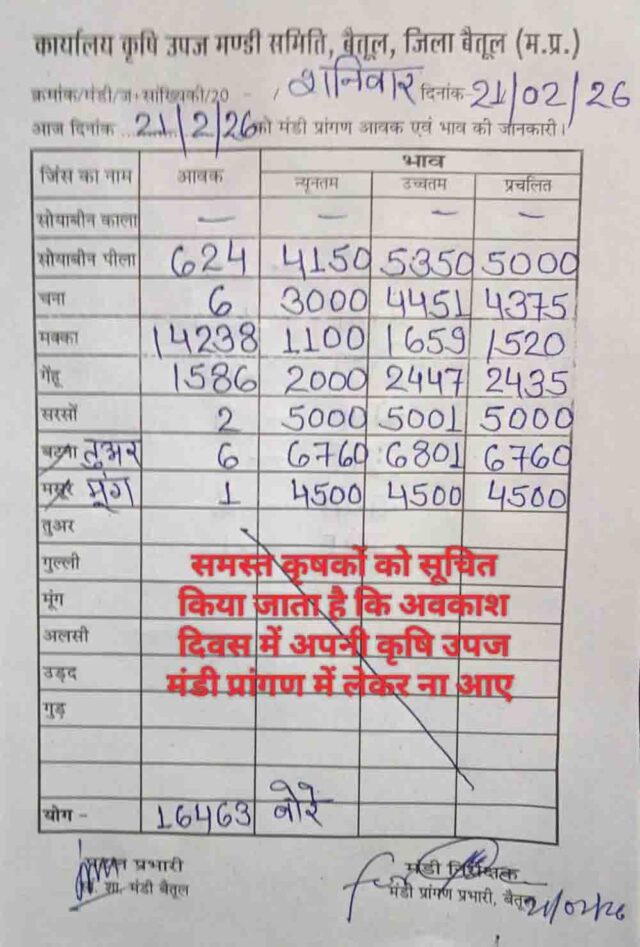 कार्यालय कृषि उपज मण्डी समिति, बैतूल, जिला बैतूल (म.प्र.)
क्रमांक/मंडी/ज.सांख्यिकी/20 - / शनिवार दिनांक 21/02/26
आज दिनांक 21/2/26 को मंडी प्रांगण आवक एवं भाव की जानकारी।
जिंस का नाम आवक भाव
न्यूनतम उच्चतम प्रचलित
सोयाबीन काला — — — —
सोयाबीन पीला 624 4150 5350 5000
चना 6 3000 4451 4375
मक्का 14238 1100 1659 1520
गेंहू 1586 2000 2447 2435
सरसों 2 5000 5001 5000
बटना तुअर 6 6760 6801 6760
मसूर मूंग 1 4500 4500 4500
तुअर
गुल्ली
मूंग
अलसी
उड़द
गुड़
समस्त कृषकों को सूचित
किया जाता है कि अवकाश
दिवस में अपनी कृषि उपज
मंडी प्रांगण में लेकर ना आए
योग - 16463 बोरे
प्रभारी
शा. मंडी बैतूल
मंडी निरीक्षक
मंडी प्रांगण प्रभारी, बैतूल 21/02/26